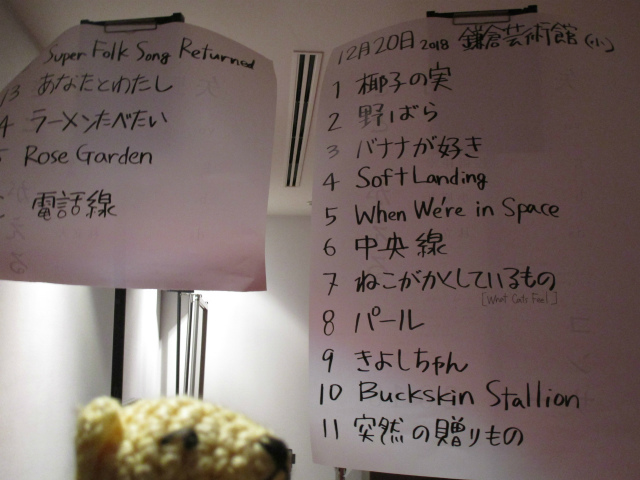 Super Folk Song Returned
13 あなたとわたし
4 ラーメンたべたい
5 Rose Garden
電話線
12月20日 2018 鎌倉芸術館(小)
1 椰子の実
2 野ばら
3 バナナが好き
4 Soft Landing
5 When We're in Space
6 中央線
7 ねこがかくしているもの
[What Cats Feel]
8 パール
9 きよしちゃん
10 Buckskin Stallion
11 突然の贈りもの